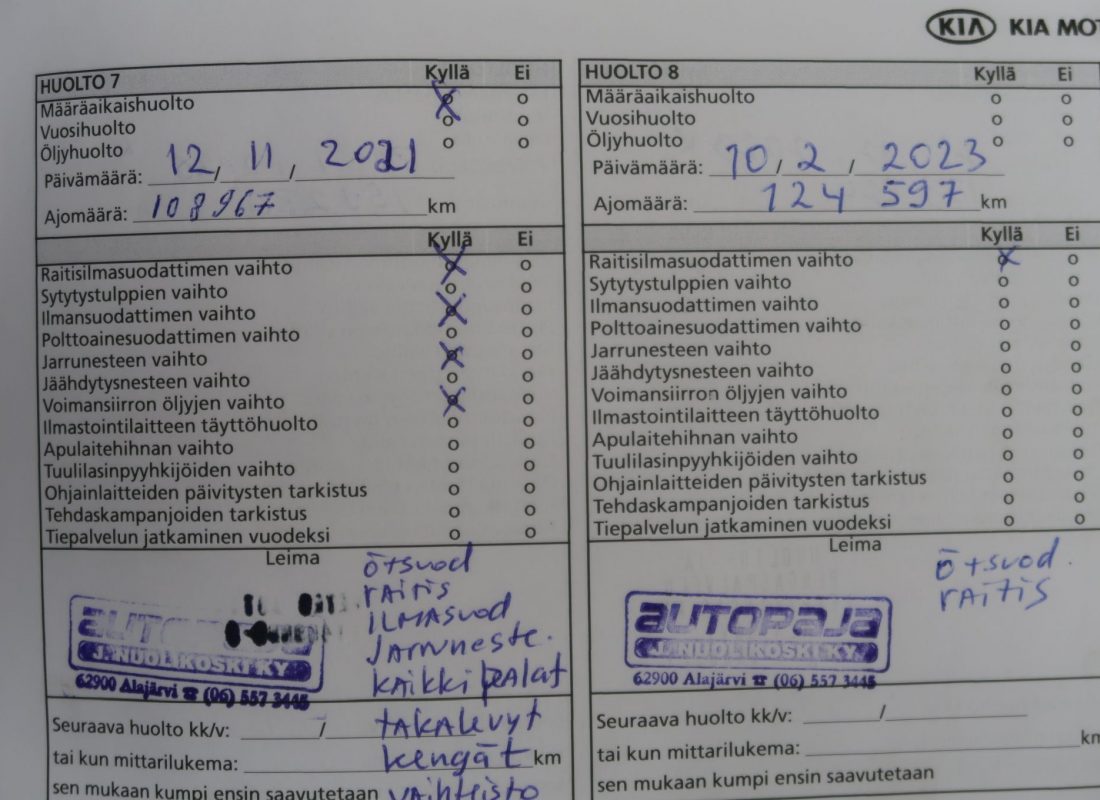 KIA KIA MOT
HUOLTO 7 Kyllä Ei
Määräaikaishuolto
Vuosihuolto
Öljyhuolto
Päivämäärä: 12 / 11 / 2021
Ajomäärä: 108967 km
Kyllä Ei
Raitisilmasuodattimen vaihto
Sytytystulppien vaihto
Ilmansuodattimen vaihto
Polttoainesuodattimen vaihto
Jarrunesteen vaihto
Jäähdytysnesteen vaihto
Voimansiirron öljyjen vaihto
Ilmastointilaitteen täyttöhuolto
Apulaitehihnan vaihto
Tuulilasinpyyhkijöiden vaihto
Ohjainlaitteiden päivitysten tarkistus
Tehdaskampanjoiden tarkistus
Tiepalvelun jatkaminen vuodeksi
Leima
ö+suod
RAITIS
ILMASUOD
JARRUNESTE.
KAIKKI PALAT
TAKALEVYT
KENGÄT
VAIHTEISTO
J. NUOLIKOSKI KY.
62900 Alajärvi ☎ (06) 557 3445
Seuraava huolto kk/v: /
tai kun mittarilukema: km
sen mukaan kumpi ensin saavutetaan
HUOLTO 8 Kyllä Ei
Määräaikaishuolto
Vuosihuolto
Öljyhuolto
Päivämäärä: 10 / 2 / 2023
Ajomäärä: 124 597 km
Kyllä Ei
Raitisilmasuodattimen vaihto
Sytytystulppien vaihto
Ilmansuodattimen vaihto
Polttoainesuodattimen vaihto
Jarrunesteen vaihto
Jäähdytysnesteen vaihto
Voimansiirron öljyjen vaihto
Ilmastointilaitteen täyttöhuolto
Apulaitehihnan vaihto
Tuulilasinpyyhkijöiden vaihto
Ohjainlaitteiden päivitysten tarkistus
Tehdaskampanjoiden tarkistus
Tiepalvelun jatkaminen vuodeksi
Leima
ö+suod.
RAITIS
AUTOPAJA
J. NUOLIKOSKI KY.
62900 Alajärvi ☎ (06) 557 3445
Seuraava huolto kk/v: /
tai kun mittarilukema: km
sen mukaan kumpi ensin saavutetaan